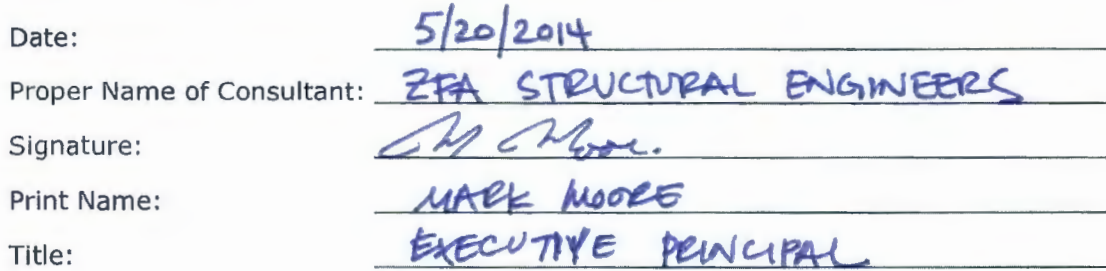 Date: 5/20/2014
Proper Name of Consultant: ZFA STRUCTURAL ENGINEERS
Signature: M Moore.
Print Name: MARK MOORE
Title: EXECUTIVE PRINCIPAL